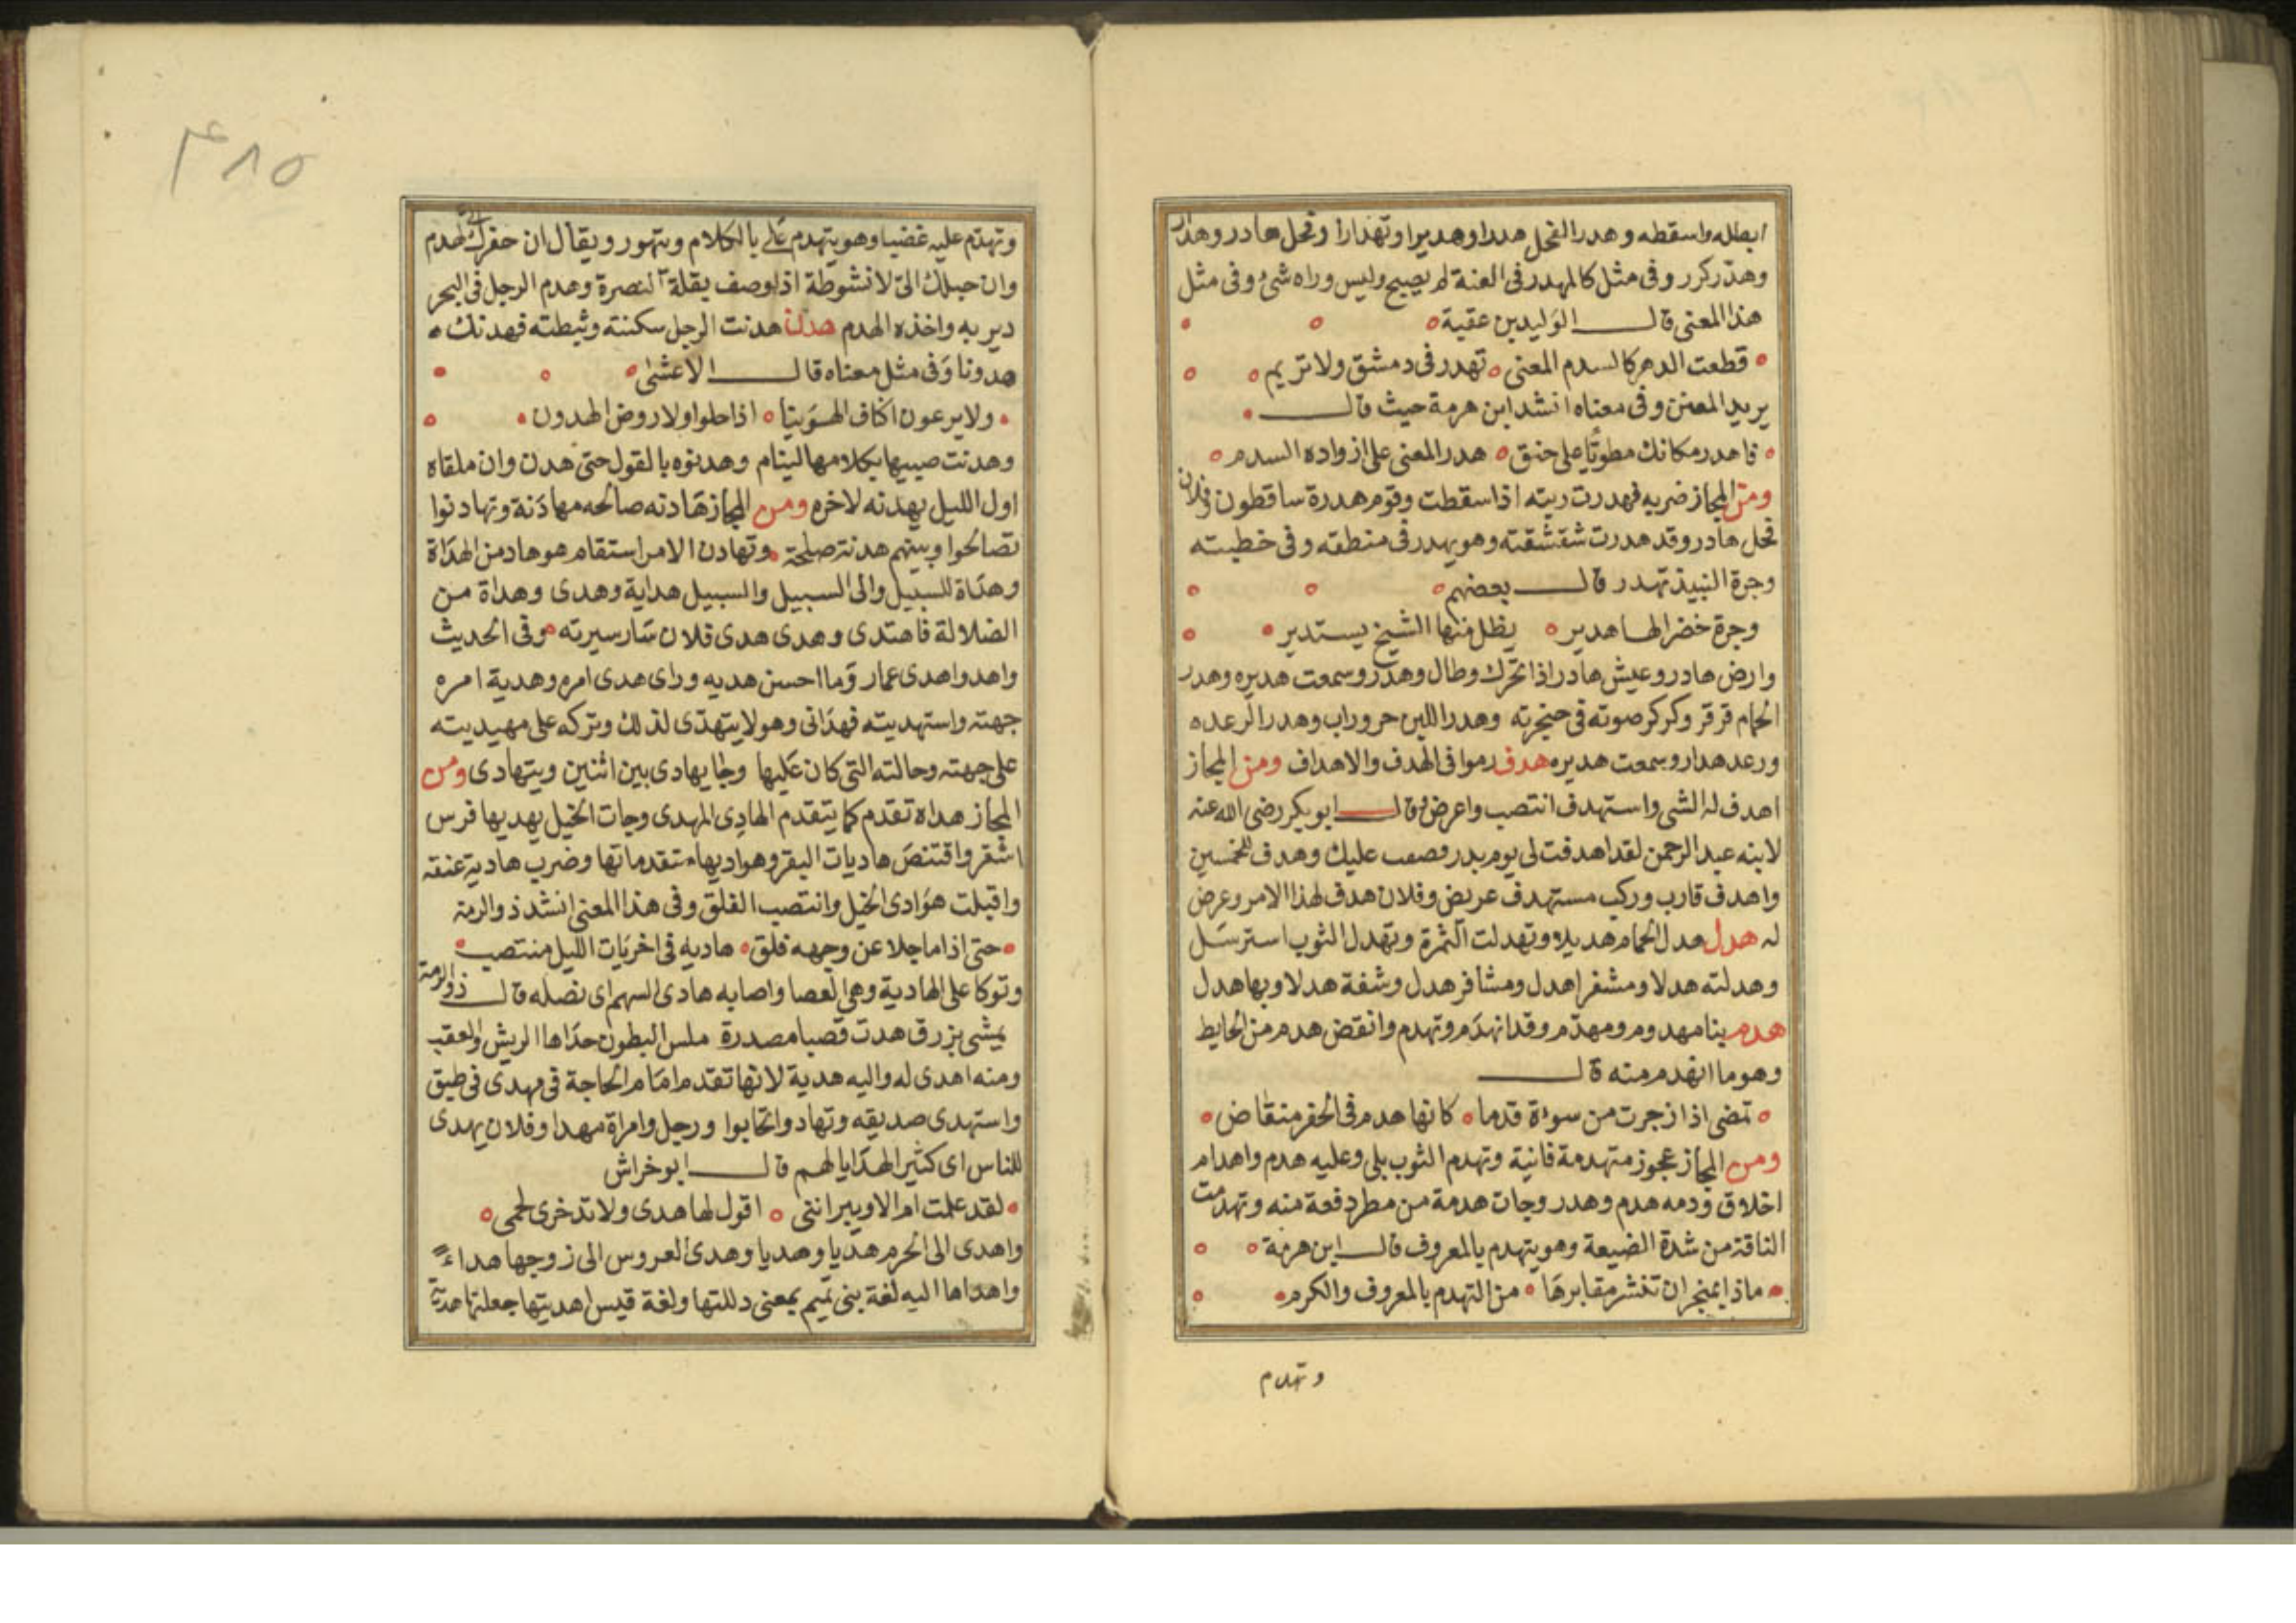 ابطله واسقطه وهدر الفحل هدرا وهديرا وتهدارا وفحل هادر وهدار
وهدّر كرر وفى مثل كالمهدر فى العنة لم يصيح وليس وراه شئ وفى مثل
هذا المعنى قال الوليد بن عقبة
قطعت الدهر كالسدم المعنى تهدر فى دمشق ولا تريم
يريد المعنن وفى معناه انشد ابن هرمة حيث قال
فاهدر مكانك مطويا على حنق هدر المعنى على ازواده السدم
ومن المجاز ضربه فهدرت ريته اذا سقطت وقوم هدرة ساقطون وفلان
فحل هادر وقد هدرت شقشقته وهو يهدر فى منطقه وفى خطبته
وجرة النبيذ تهدر قال بعضهم
وجرة خضر لها هدير يظل منها الشيخ يستدير
وارض هادر وعيش هادر اذا تحرك وطال وهدر وسمعت هديره وهدر
الحمام قرقر وكركر صوته فى حنجرته وهدر اللبن حر وراب وهدر الرعده
ورعد هدار وسمعت هديره هدف رموا فى الهدف والاهداف ومن المجاز
اهدف له الشى واستهدف انتصب واعرض وقال ابو بكر رضى الله عنه
لابنه عبد الرحمن لقد اهدفت لى يوم بدر فصعب عليك وهدف للخمسين
واهدف قارب وركب مستهدف عريض وفلان هدف لهذا الامر وعرض
له هدل هدل الحمام هديلا وتهدلت الثمرة وتهدل الثوب استرسل
وهدلته هدلا ومشفر اهدل ومشافر هدل وشفة هدلا وبها هدل
هدم بنا مهدوم ومهدّم وقد انهدم وتهدم وانقض هدم من الحايط
وهو ما انهدم منه قال
تمضى اذا زجرت من سوءة قدما كانها هدم فى الحفر منقاض
ومن المجاز عجوز متهدمة فانية وتهدم الثوب بلى وعليه هدم واهدام
اخلاق ودمه هدم وهدر وجات هدمة من مطر دفعة منه وتهدمت
الناقة من شدة الضبعة وهو يتهدم بالمعروف قال ابن هرمة
ماذا بمنجر ان تنشر مقابرها من التهدم بالمعروف والكرم
وتهدم
٤٨٥
وتهدّم عليه غضبا وهو يتهدم على بالكلام ويتهور ويقال ان حفرك الىّ لهدم
وان حبلك الىّ لانشوطة اذا وصف بقلة النصرة وهدم الرجل فى البحر
دير به واخذه الهدم هدن هدنت الرجل سكنته وثبطته فهدنك
هدونا وفى مثل معناه قال الاعشى
ولا يرعون اكناف الهوينا اذا حلوا ولا روض الهدون
وهدنت صبيها بكلامها لينام وهدنوه بالقول حتى هدن وان ملقاه
اول الليل يهدنه لاخره ومن المجاز هادنه صالحه مهادنة وتهادنوا
تصالحوا وبينهم هدنة صلحة وتهادن الامر استقام هو هاد من الهداة
وهداة للسبيل والى السبيل والسبيل هداية وهدى وهداة من
الضلالة فاهتدى وهدى هدى فلان سار سيرته وفى الحديث
واهدوا هدى عمار وما احسن هديه وراى هدى امره وهدية امره
جهته واستهديته فهدانى وهو لا يتهدّى لذلك وتركه على مهيديته
على جهته وحالته التى كان عليها وجا يهادى بين اثنين ويتهادى ومن
المجاز هداه تقدم كما يتقدم الهادى المهدى وجات الخيل يهديها فرس
اشقر واقتنص هاديات البقر وهواديها متقدماتها وضرب هادية عنقه
واقبلت هوادى الخيل وانتصب الفلق وفى هذا المعنى انشد ذو الرمة
حتى اذا ما جلا عن وجهه فلق هاديه فى اخريات الليل منتصب
وتوكا على الهادية وهى العصا واصابه هادى السهم اى نصله قال ذو الرمة
يمشى بزرق هدت قضبا مصدرة ملس البطون حداها الريش والعقب
ومنه اهدى له واليه هدية لانها تقدم امام الحاجة فى مهدى فى طبق
واستهدى صديقه وتهادوا تحابوا ورجل وامراة مهدا وفلان يهدى
للناس اى كثير الهدايا لهم قال ابو خراش
لقد علمت ام الاويبر اننى اقول لها هدى ولا تذخرى لحمى
واهدى الى الحرم هديا وهديا وهدى العروس الى زوجها هداء
واهداها اليه لغة بنى تميم بمعنى دللتها ولغة قيس اهديتها جعلتها هدية